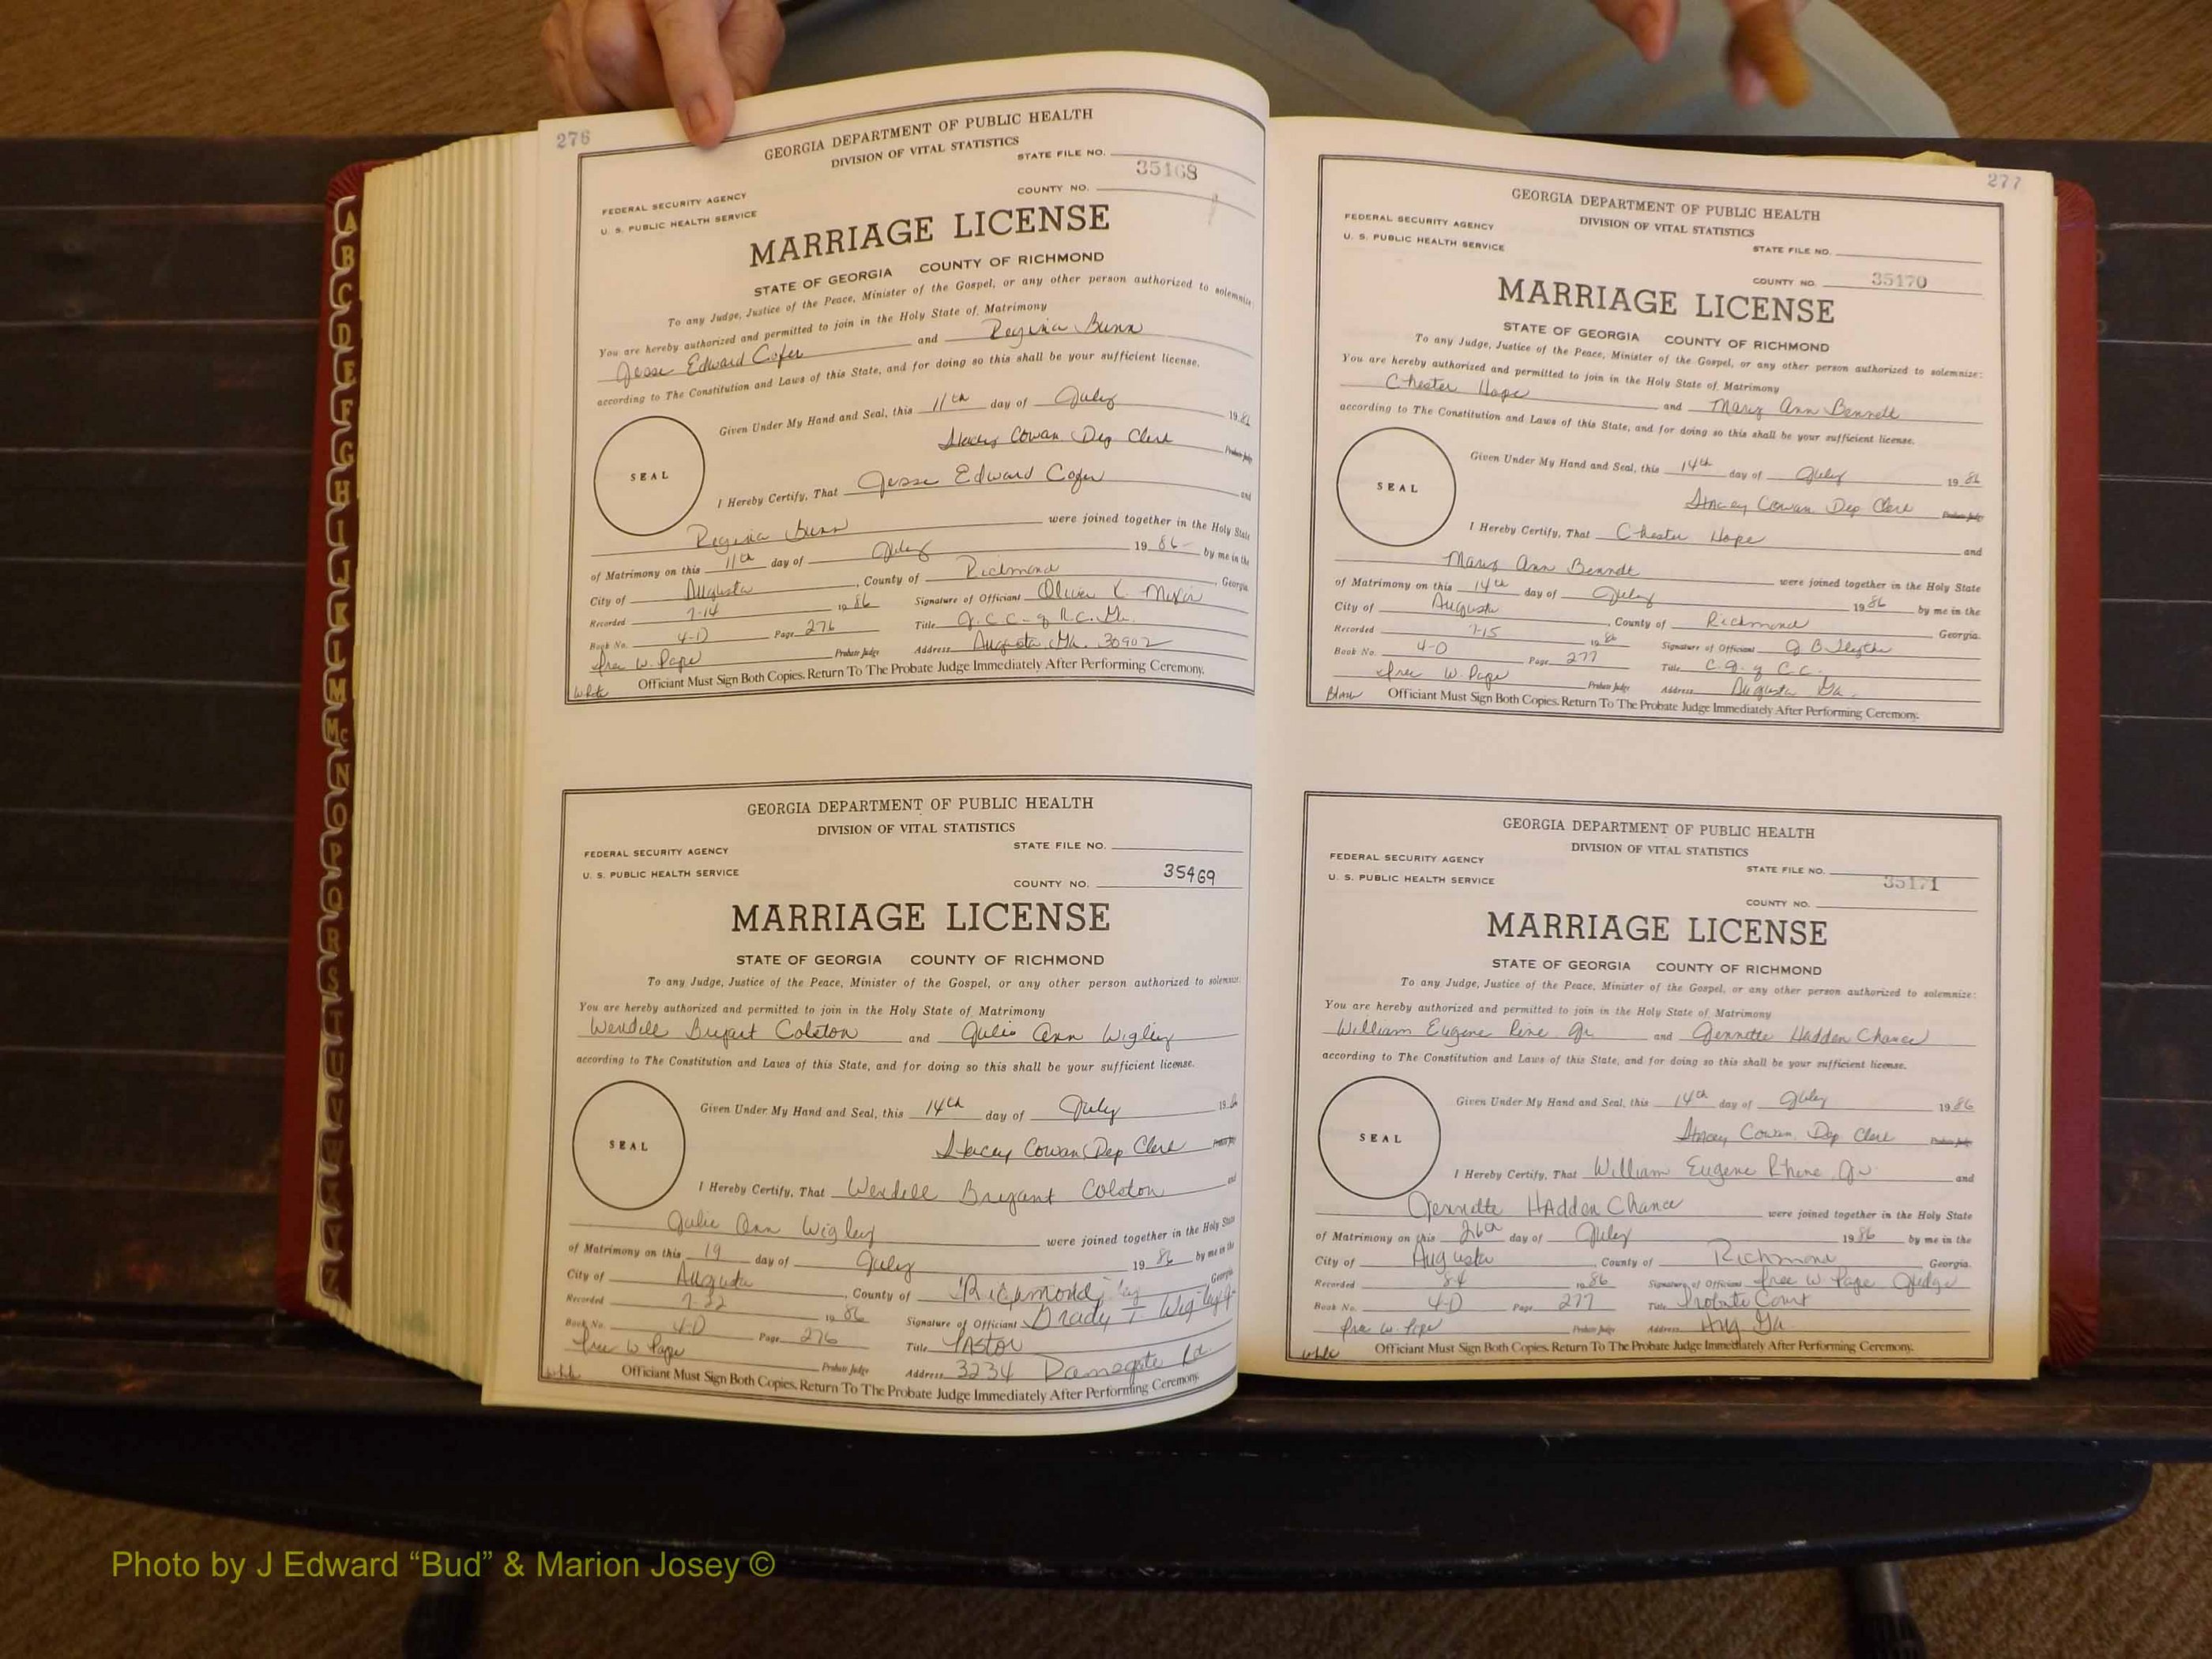 A
B
C
D
E
F
G
H
I
J
K
L
M
Mc
N
O
P
Q
R
S
T
U
V
W
Z
276
GEORGIA DEPARTMENT OF PUBLIC HEALTH
DIVISION OF VITAL STATISTICS
STATE FILE NO. 35168
FEDERAL SECURITY AGENCY
U. S. PUBLIC HEALTH SERVICE
COUNTY NO.
MARRIAGE LICENSE
STATE OF GEORGIA COUNTY OF RICHMOND
To any Judge, Justice of the Peace, Minister of the Gospel, or any other person authorized to solemnize:
You are hereby authorized and permitted to join in the Holy State of Matrimony
Jesse Edward Cofer and Regina Bunn
according to The Constitution and Laws of this State, and for doing so this shall be your sufficient license.
Given Under My Hand and Seal, this 11th day of July 1986
SEAL
Stacey Cowan Dep Clerk Probate Judge
I Hereby Certify, That Jesse Edward Cofer and
Regina Bunn were joined together in the Holy State
of Matrimony on this 11th day of July 1986 by me in the
City of Augusta, County of Richmond, Georgia
Recorded 7-14 1986 Signature of Officiant Oliver K. Mixon
Book No. 4-D Page 276 Title J.C.C. of R.C. Ga.
Probate Judge Address Augusta, Ga. 30902
White Officiant Must Sign Both Copies. Return To The Probate Judge Immediately After Performing Ceremony.
GEORGIA DEPARTMENT OF PUBLIC HEALTH
DIVISION OF VITAL STATISTICS
FEDERAL SECURITY AGENCY STATE FILE NO.
U. S. PUBLIC HEALTH SERVICE
COUNTY NO. 35469
MARRIAGE LICENSE
STATE OF GEORGIA COUNTY OF RICHMOND
To any Judge, Justice of the Peace, Minister of the Gospel, or any other person authorized to solemnize:
You are hereby authorized and permitted to join in the Holy State of Matrimony
Wendell Bryant Colston and Julie Ann Wigley
according to The Constitution and Laws of this State, and for doing so this shall be your sufficient license.
Given Under My Hand and Seal, this 14th day of July 1986
SEAL
Stacey Cowan, Dep Clerk Probate Judge
I Hereby Certify, That Wendell Bryant Colston and
Julie Ann Wigley were joined together in the Holy State
of Matrimony on this 19 day of July 1986 by me in the
City of Augusta, County of Richmond, Georgia
Recorded 7-22 1986 Signature of Officiant Brady T. Wigley
Book No. 4-D Page 276 Title Pastor
Probate Judge Address 3234 Ramsgate Rd.
White Officiant Must Sign Both Copies. Return To The Probate Judge Immediately After Performing Ceremony.
277
GEORGIA DEPARTMENT OF PUBLIC HEALTH
DIVISION OF VITAL STATISTICS
FEDERAL SECURITY AGENCY
U. S. PUBLIC HEALTH SERVICE STATE FILE NO.
COUNTY NO. 35170
MARRIAGE LICENSE
STATE OF GEORGIA COUNTY OF RICHMOND
To any Judge, Justice of the Peace, Minister of the Gospel, or any other person authorized to solemnize:
You are hereby authorized and permitted to join in the Holy State of Matrimony
Chester Hope and Mary Ann Bennett
according to The Constitution and Laws of this State, and for doing so this shall be your sufficient license.
Given Under My Hand and Seal, this 14th day of July 1986
SEAL
Stacey Cowan Dep Clerk Probate Judge
I Hereby Certify, That Chester Hope and
Mary Ann Bennett were joined together in the Holy State
of Matrimony on this 14th day of July 1986 by me in the
City of Augusta, County of Richmond Georgia.
Recorded 7-15 1986 Signature of Officiant
Book No. 4-D Page 277 Title
W. Pape Probate Judge Address Augusta Ga.
Officiant Must Sign Both Copies. Return To The Probate Judge Immediately After Performing Ceremony.
GEORGIA DEPARTMENT OF PUBLIC HEALTH
DIVISION OF VITAL STATISTICS
FEDERAL SECURITY AGENCY
U. S. PUBLIC HEALTH SERVICE STATE FILE NO. 35171
COUNTY NO.
MARRIAGE LICENSE
STATE OF GEORGIA COUNTY OF RICHMOND
To any Judge, Justice of the Peace, Minister of the Gospel, or any other person authorized to solemnize:
You are hereby authorized and permitted to join in the Holy State of Matrimony
William Eugene Rine Jr and Jennette Hadden Chance
according to The Constitution and Laws of this State, and for doing so this shall be your sufficient license.
Given Under My Hand and Seal, this 14th day of July 1986
SEAL
Stacey Cowan, Dep Clerk Probate Judge
I Hereby Certify, That William Eugene Rhine Jr and
Jennette HAdden Chance were joined together in the Holy State
of Matrimony on this 26th day of July 1986 by me in the
City of Augusta, County of Richmond Georgia.
Recorded 8-4 1986 Signature of Officiant W. Pape Judge
Book No. 4-D Page 277 Title Probate Court
W. Pape Probate Judge Address Aug Ga.
White Officiant Must Sign Both Copies. Return To The Probate Judge Immediately After Performing Ceremony.
Photo by J Edward “Bud” & Marion Josey ©